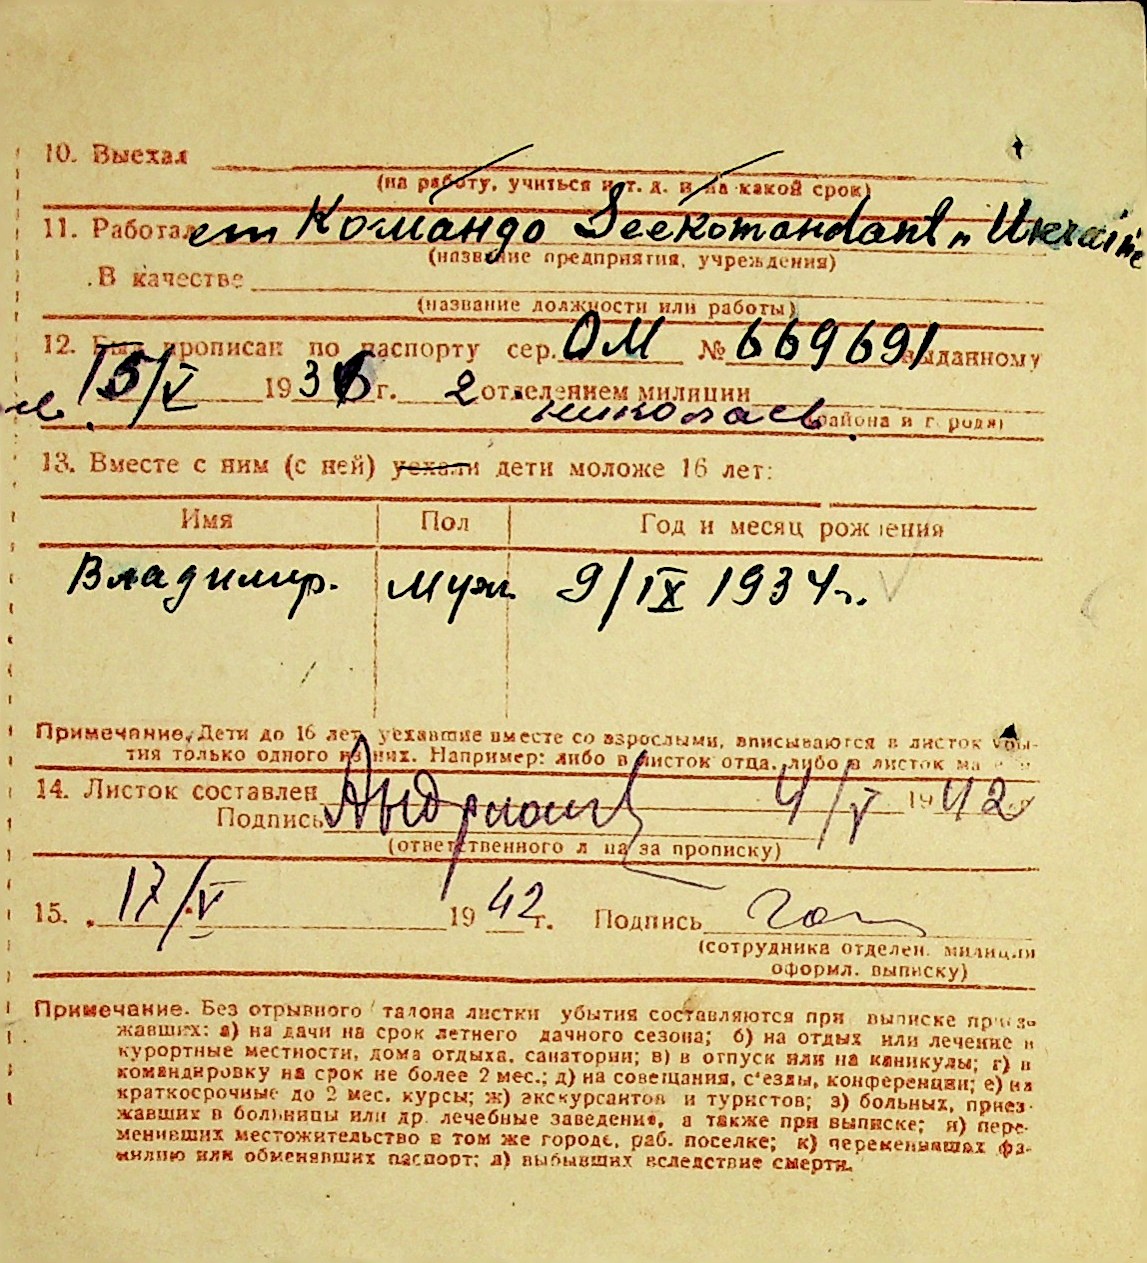 10. Выехал
(на работу, учиться и т. д. и на какой срок)
11. Работал ет Командо Seekomandant Ukraine
(название предприятия, учреждения)
В качестве
(название должности или работы)
12. Был прописан по паспорту сер. ОМ № 669691 выданному
15/V 1936 г. 2 отделением милиции
николаев (района и города)
13. Вместе с ним (с ней) уехали дети моложе 16 лет:
Имя Пол Год и месяц рождения
Владимир. муж. 9/IX 1934 г.
Примечание. Дети до 16 лет, уехавшие вместе со взрослыми, вписываются в листок убы-
тия только одного из них. Например: либо в листок отца, либо в листок ма
14. Листок составлен 4/V 1942
Подпись
(ответственного лица за прописку)
15. 17/V 1942 г. Подпись
(сотрудника отделен. милиции
оформл. выписку)
Примечание. Без отрывного талона листки убытия составляются при выписке приез-
жавших: а) на дачи на срок летнего дачного сезона; б) на отдых или лечение в
курортные местности, дома отдыха, санатории; в) в отпуск или на каникулы; г) в
командировку на срок не более 2 мес.; д) на совещания, с'езды, конференции; е) на
краткосрочные до 2 мес. курсы; ж) экскурсантов и туристов; з) больных, приез-
жавших в больницы или др. лечебные заведения, а также при выписке; и) пере-
менивших местожительство в том же городе, раб. поселке; к) переменивших фа-
милию или обменявших паспорт; л) выбывших вследствие смерти.